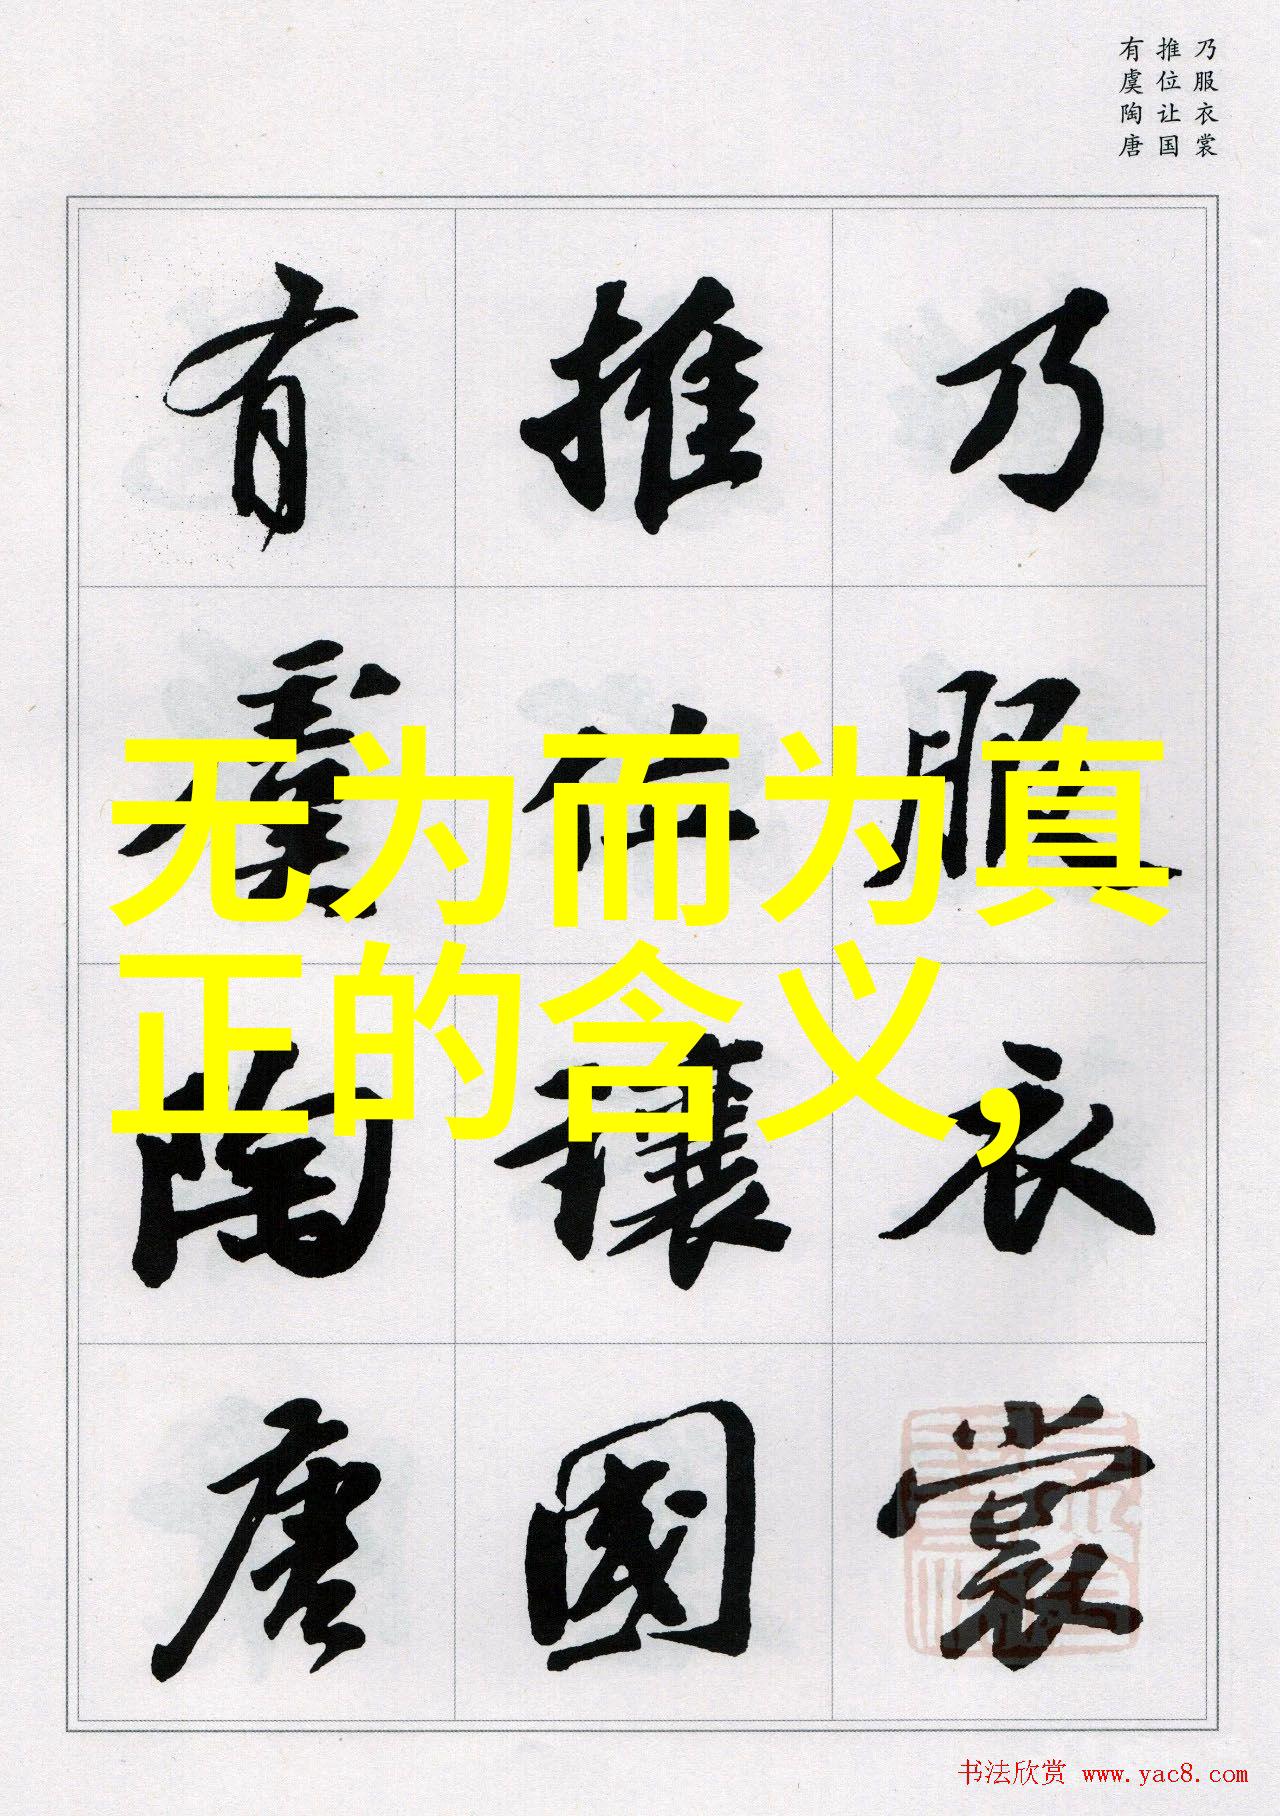 乃服衣裳
推位让国
有虞陶唐
乃服衣裳
推位讓國
有虞陶唐
无为而为真
正的含义,
书法欣赏 www.yac8.com